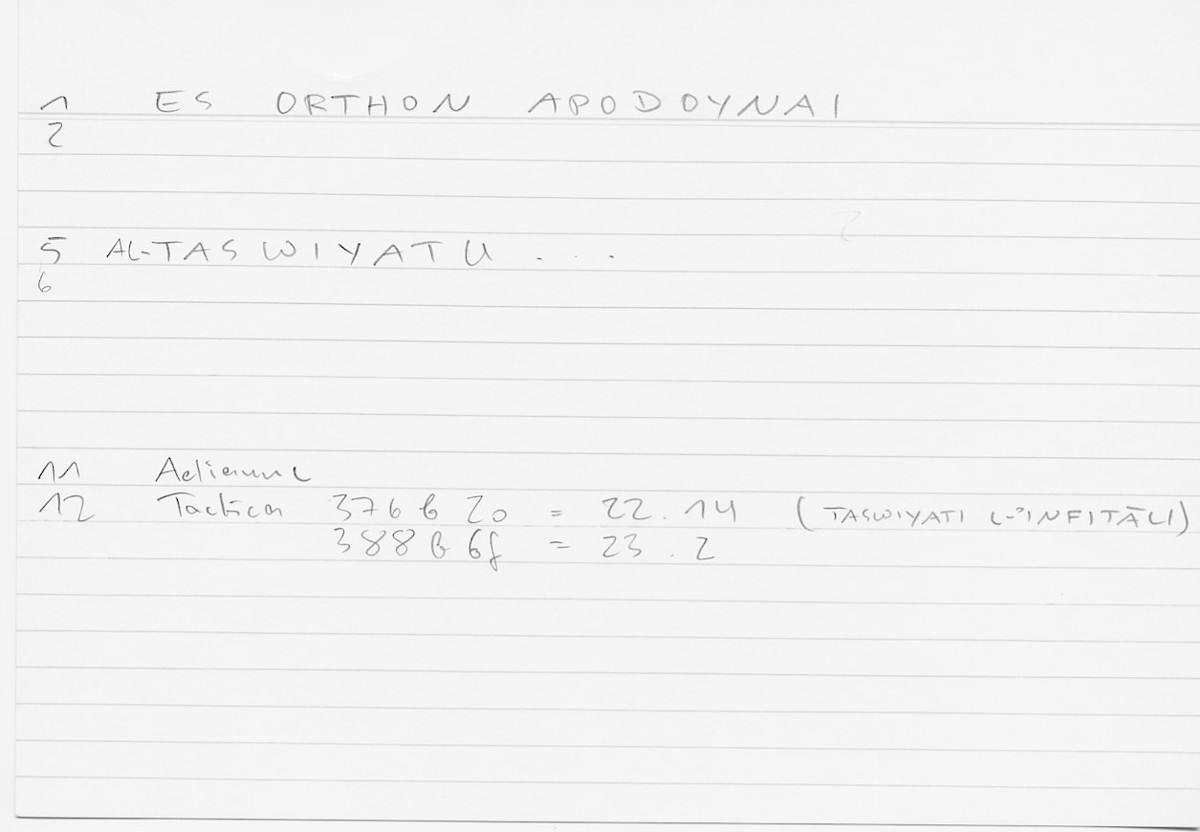 1 ES ORTHON APODOYNAI
2
5 AL-TASWIYATU . . .
6
11 Aelianus
12 Tactica 376 b 20 = 22.14 (TASWIYATI L-ʾINFITĀLI)
388 b 6f = 23.2